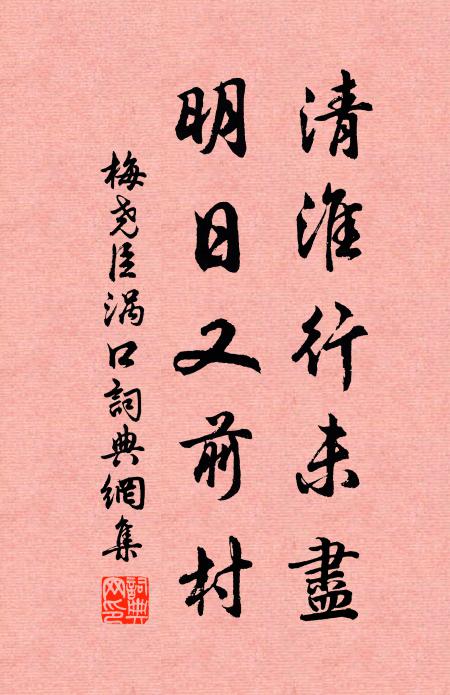 清淮行未盡
明日又前村
梅尧臣涡口詞典網集
詞典网印